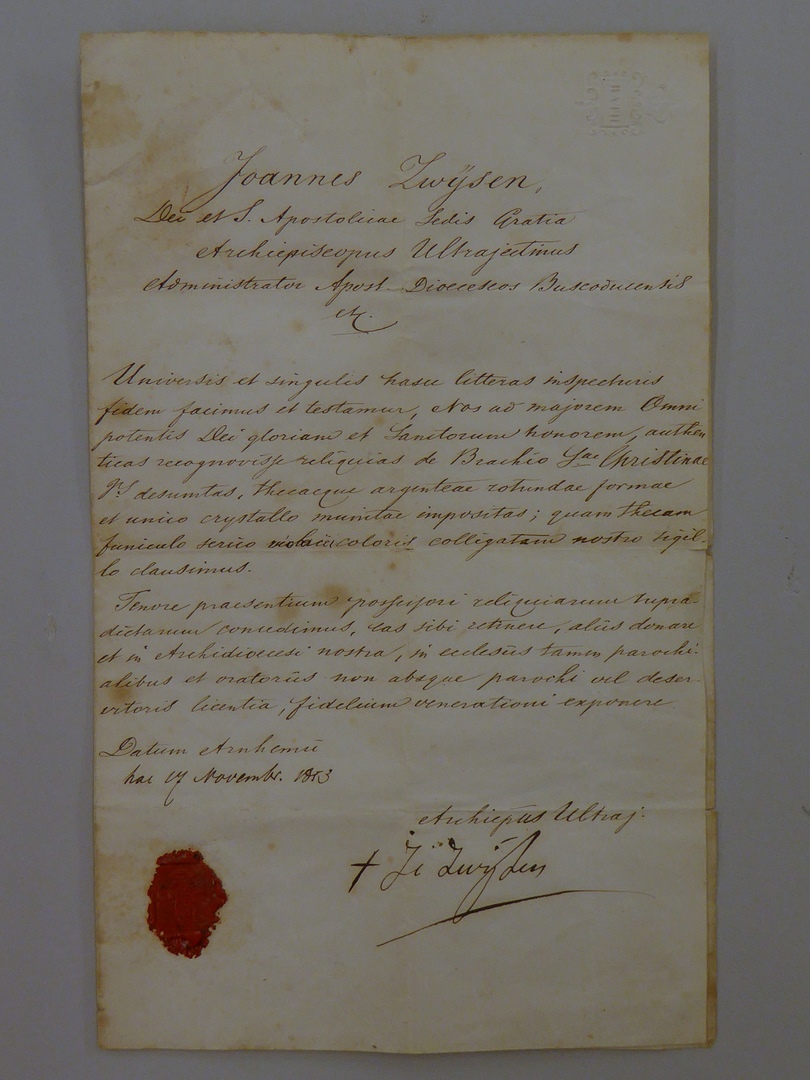 Joannes Zwÿsen,
Dei et S. Apostolicae Sedis Gratia
Archiepiscopus Ultrajectinus
Administrator Apost. Dioeceseos Buscoducensis
etc.
Universis et singulis hasce litteras inspecturis
fidem facimus et testamur, Nos ad majorem Omni
potentis Dei gloriam et Sanctorum honorem, authen
ticas recognovisse reliquias de Brachio Stae Christinae
desumtas, thecaeque argenteae rotundae formae
et unico crystallo munitae impositas; quam thecam
funiculo serico violacei coloris colligatam nostro sigil-
lo clausimus.
Tenore praesentium possessori reliquiarum supra-
dictarum concedimus, eas sibi retinere, aliis donare
et in Archidioecesi nostra, in ecclesiis tamen parochi-
alibus et oratoriis non absque parochi vel deser-
vitoris licentia, fidelium venerationi exponere
Datum Arnhemii
hac 17 Novembr. 1853
Archiepus Ultraj.
+ J. Zwÿsen